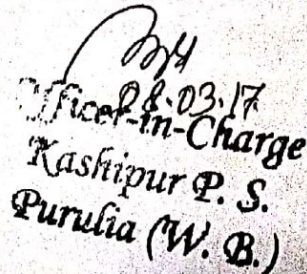 08.03.17
Officer-in-Charge
Kashipur P. S.
Purulia (W. B.)